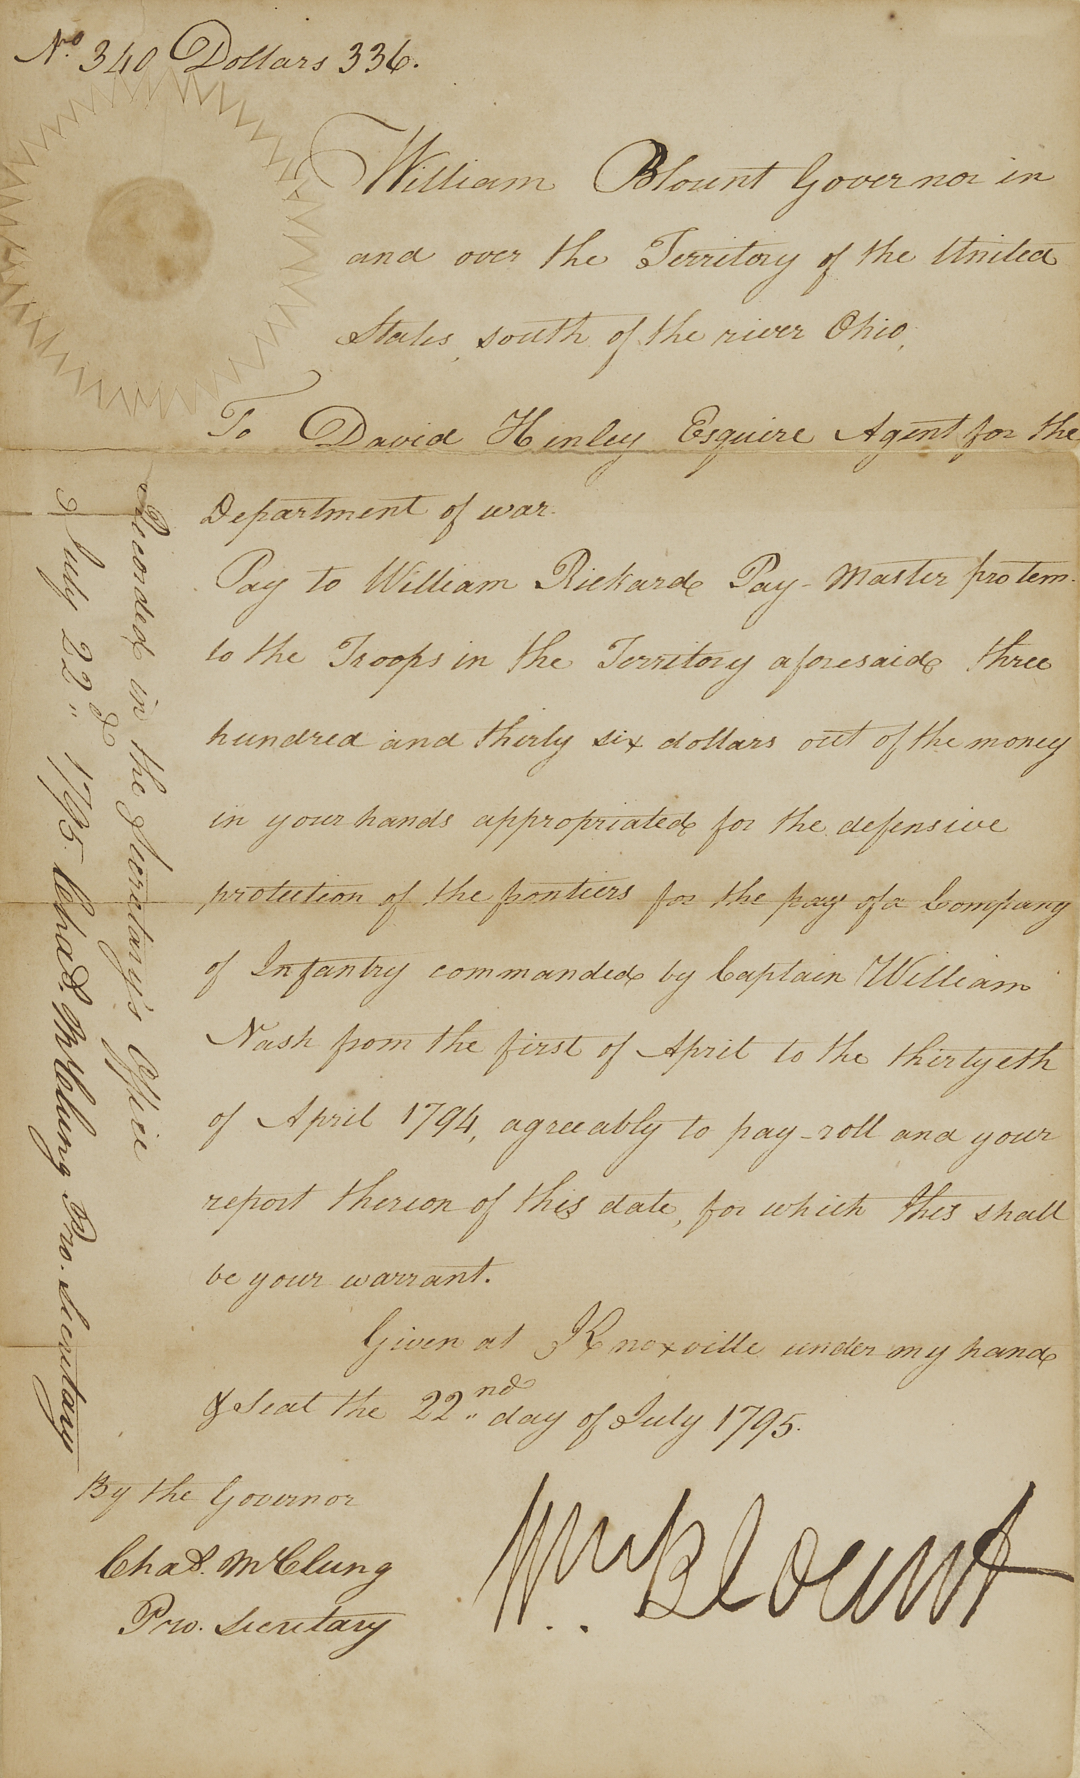 No. 340 Dollars 336.
William Blount Governor in
and over the Territory of the United
States, south of the river Ohio,
To David Henley Esquire Agent for the
Department of war.
Pay to William Rickard Pay-Master pro tem.
to the Troops in the Territory aforesaid three
hundred and thirty six dollars out of the money
in your hands appropriated for the defensive
protection of the frontiers for the pay of a Company
of Infantry commanded by Captain William
Nash from the first of April to the thirtyeth
of April 1794, agreeably to pay-roll and your
report thereon of this date, for which this shall
be your warrant.
Given at Knoxville under my hand
& Seal the 22nd day of July 1795.
By the Governor
Chas. McClung
Pro. Secretary
Wm. Blount
Recorded in the Secretary's Office
July 22d 1795 Chas. McClung Pro. Secretary